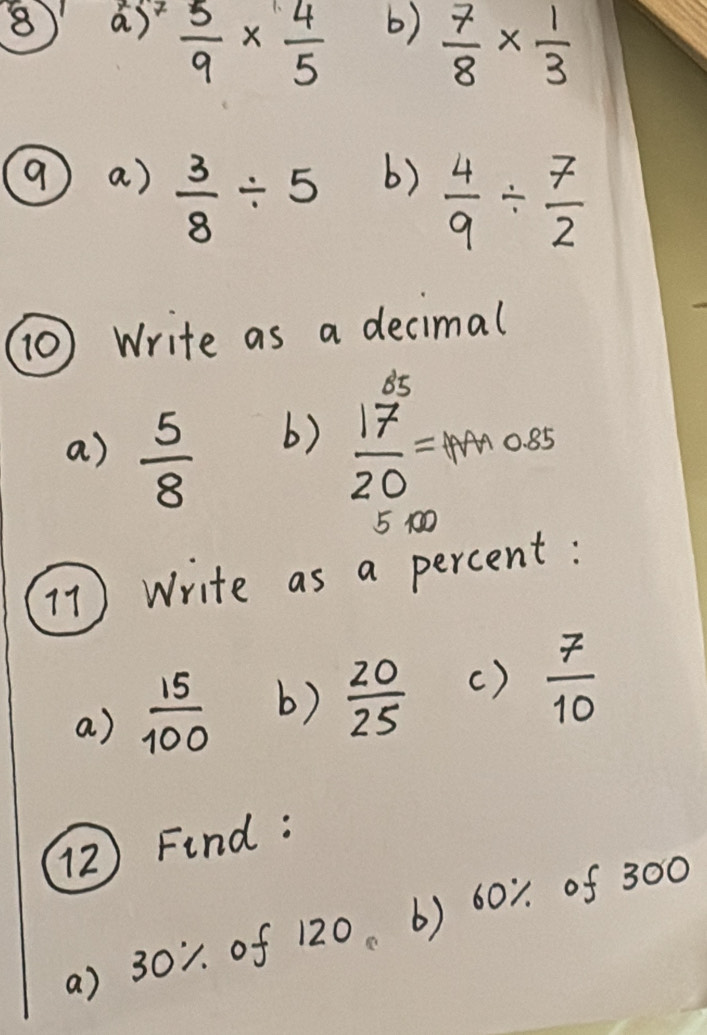 8) a) 5/9 × 4/5 b) 7/8 × 1/3
9) a) 3/8 ÷ 5 b) 4/9 ÷ 7/2
10) Write as a decimal
85
a) 5/8 b) 17/20 = 0.85
5 100
11) Write as a percent :
a) 15/100 b) 20/25 c) 7/10
12) Find :
a) 30% of 120. b) 60% of 300